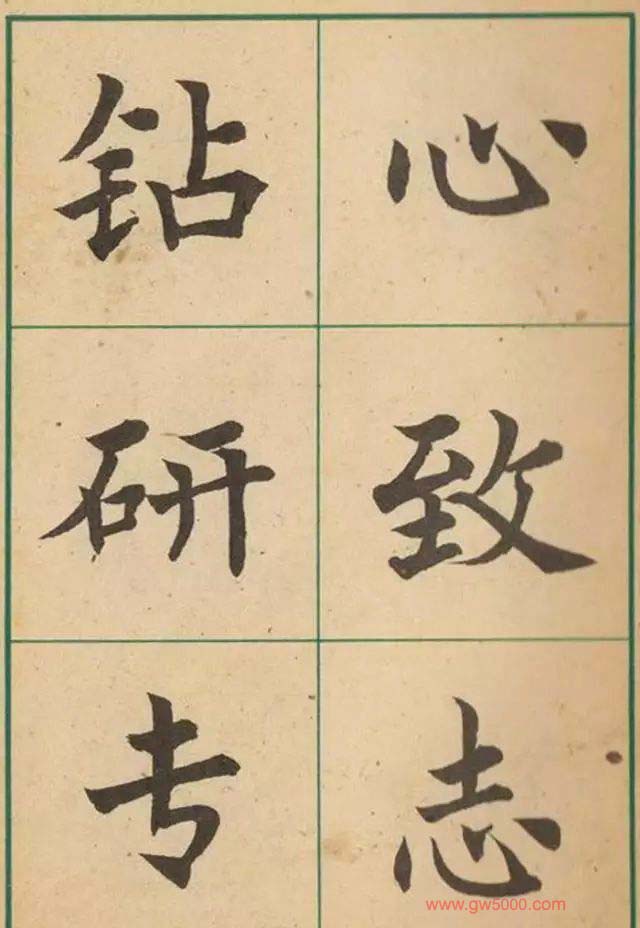 心致志
钻研专
www.gw5000.com